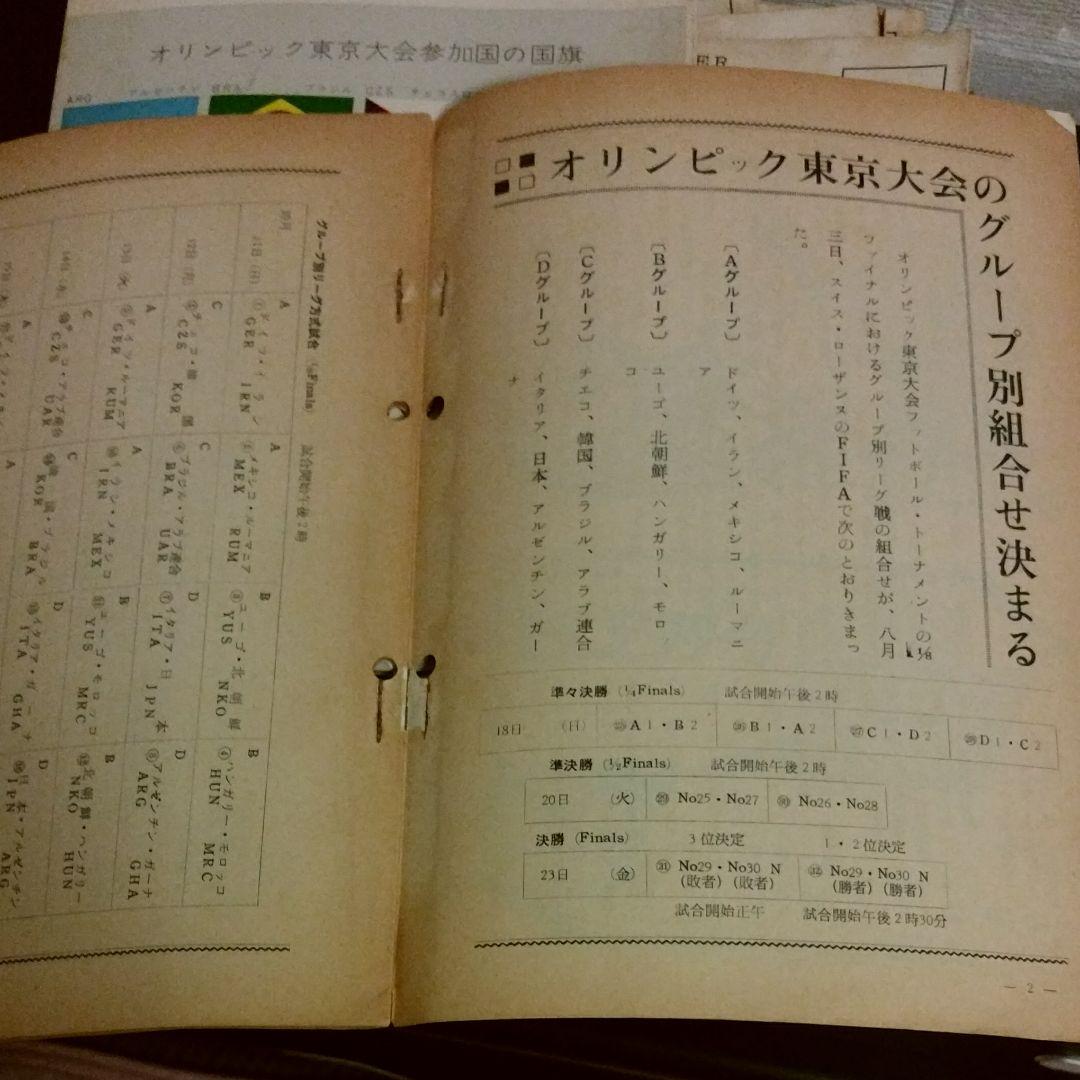 オリンピック東京大会参加国の国旗
ARG
アルゼンチン
ブラジル
CZS
ER
オリンピック東京大会の
グループ別組合せ決まる
オリンピック東京大会フットボール・トーナメントの⅛
ファイナルにおけるグループ別リーグ戦の組合せが、八月
三日、スイス・ローザンヌのFIFAで次のとおりきまっ
た。
〔Aグループ〕 ドイツ、イラン、メキシコ、ルーマニ
ア
〔Bグループ〕 ユーゴ、北朝鮮、ハンガリー、モロ
コ
〔Cグループ〕 チエコ、韓国、ブラジル、アラブ連合
〔Dグループ〕 イタリア、日本、アルゼンチン、ガー
ナ
準々決勝 (¼Finals) 試合開始午後2時
18日 (日) ㉕A1・B2 ㉖B1・A2 ㉗C1・D2 ㉘D1・C2
準決勝 (½Finals) 試合開始午後2時
20日 (火) ㉙ No25・No27 ㉚ No26・No28
決勝 (Finals) 3位決定 1・2位決定
23日 (金) ㉛ No29・No30 N ㉜ No29・No30 N
(敗者) (敗者) (勝者) (勝者)
試合開始正午 試合開始午後2時30分
— 2 —
グループ別リーグ方式試合 (⅛Finals) 試合開始午後2時
11日 (日) A ①ドイツ・イラン A ②メキシコ・ルーマニア B ③ユーゴ・北朝鮮 B ④ハンガリー・モロッコ
GER IRN MEX RUM YUS NKO HUN MRC
12日 C チェコ・韓国 C ブラジル・アラブ連合 D ⑦イタリア・日本 D ⑧アルゼンチン・ガーナ
CZS KOR BRA UAR ITA JPN ARG GHA
13日 (火) A ドイツ・ルーマニア A ⑩イラン・メキシコ B ⑪ユーゴ・モロッコ B ⑫北朝鮮・ハンガリー
GER RUM IRN MEX YUS MRC NKO HUN
14日 C チェコ・アラブ連合 C 韓国・ブラジル D ⑮イタリア・ガーナ D ⑯日本・アルゼンチン
CZS UAR KOR BRA ITA GHA JPN ARG
A A